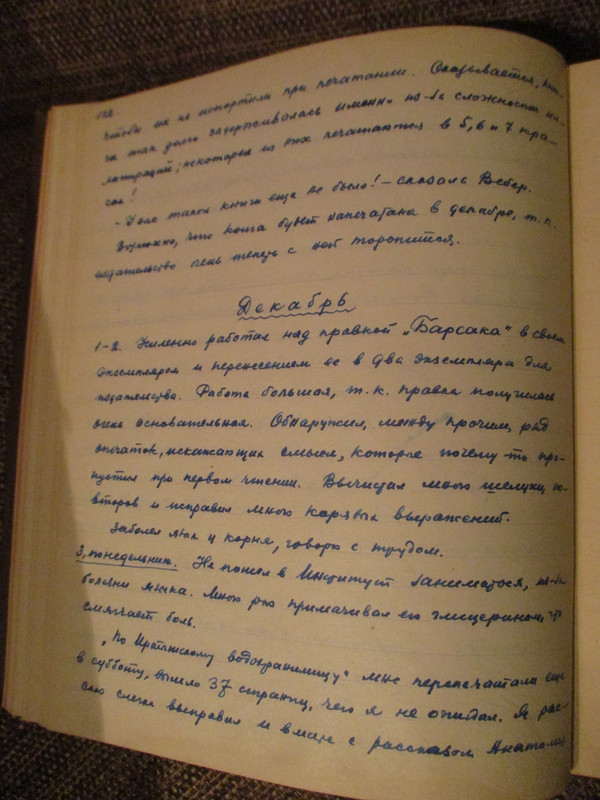 122.
чтобы их не испортили при печатании. Оказывается, кни-
га так долго задерживалась именно из-за сложности ил-
люстраций; некоторые из них печатаются в 5, 6 и 7 кра-
сок!
– У нас такой книги еще не было! – сказала Вебер.
Возможно, что книга будет напечатана в декабре, т.к.
издательство очень теперь с ней торопится.
Декабрь
1-2. Усиленно работал над правкой „Барсака" в своем
экземпляре и перенесением ее в два экземпляра для
издательства. Работа большая, т.к. правка получилась
очень основательная. Обнаружил, между прочим, ряд
опечаток, искажающих смысл, которые почему-то про-
пустил при первом чтении. Вычистил много шелухи,
второв и исправил много корявых выражений.
Заболел язык у корня, говорю с трудом.
3, понедельник. Не пошел в Институт заниматься, из-за
болезни языка. Много раз примачивал его глицерином, это
смягчает боль.
„По Иртышскому водохранилищу" мне перепечатали еще
в субботу, вышло 37 страниц, чего я не ожидал. Я рас-
сказ слегка выправил и вместе с рассказом Анатолия